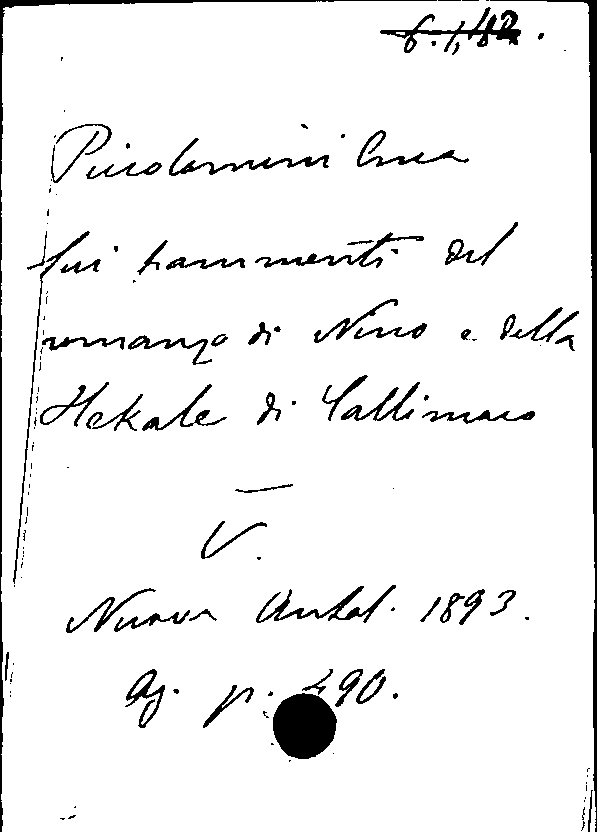 6.1,42.
Piccolomini Enea
Sui frammenti del
romanzo di Nino e della
Hekale di Callimaco
V.
Nuova Antol. 1893.
Ag. p. 490.